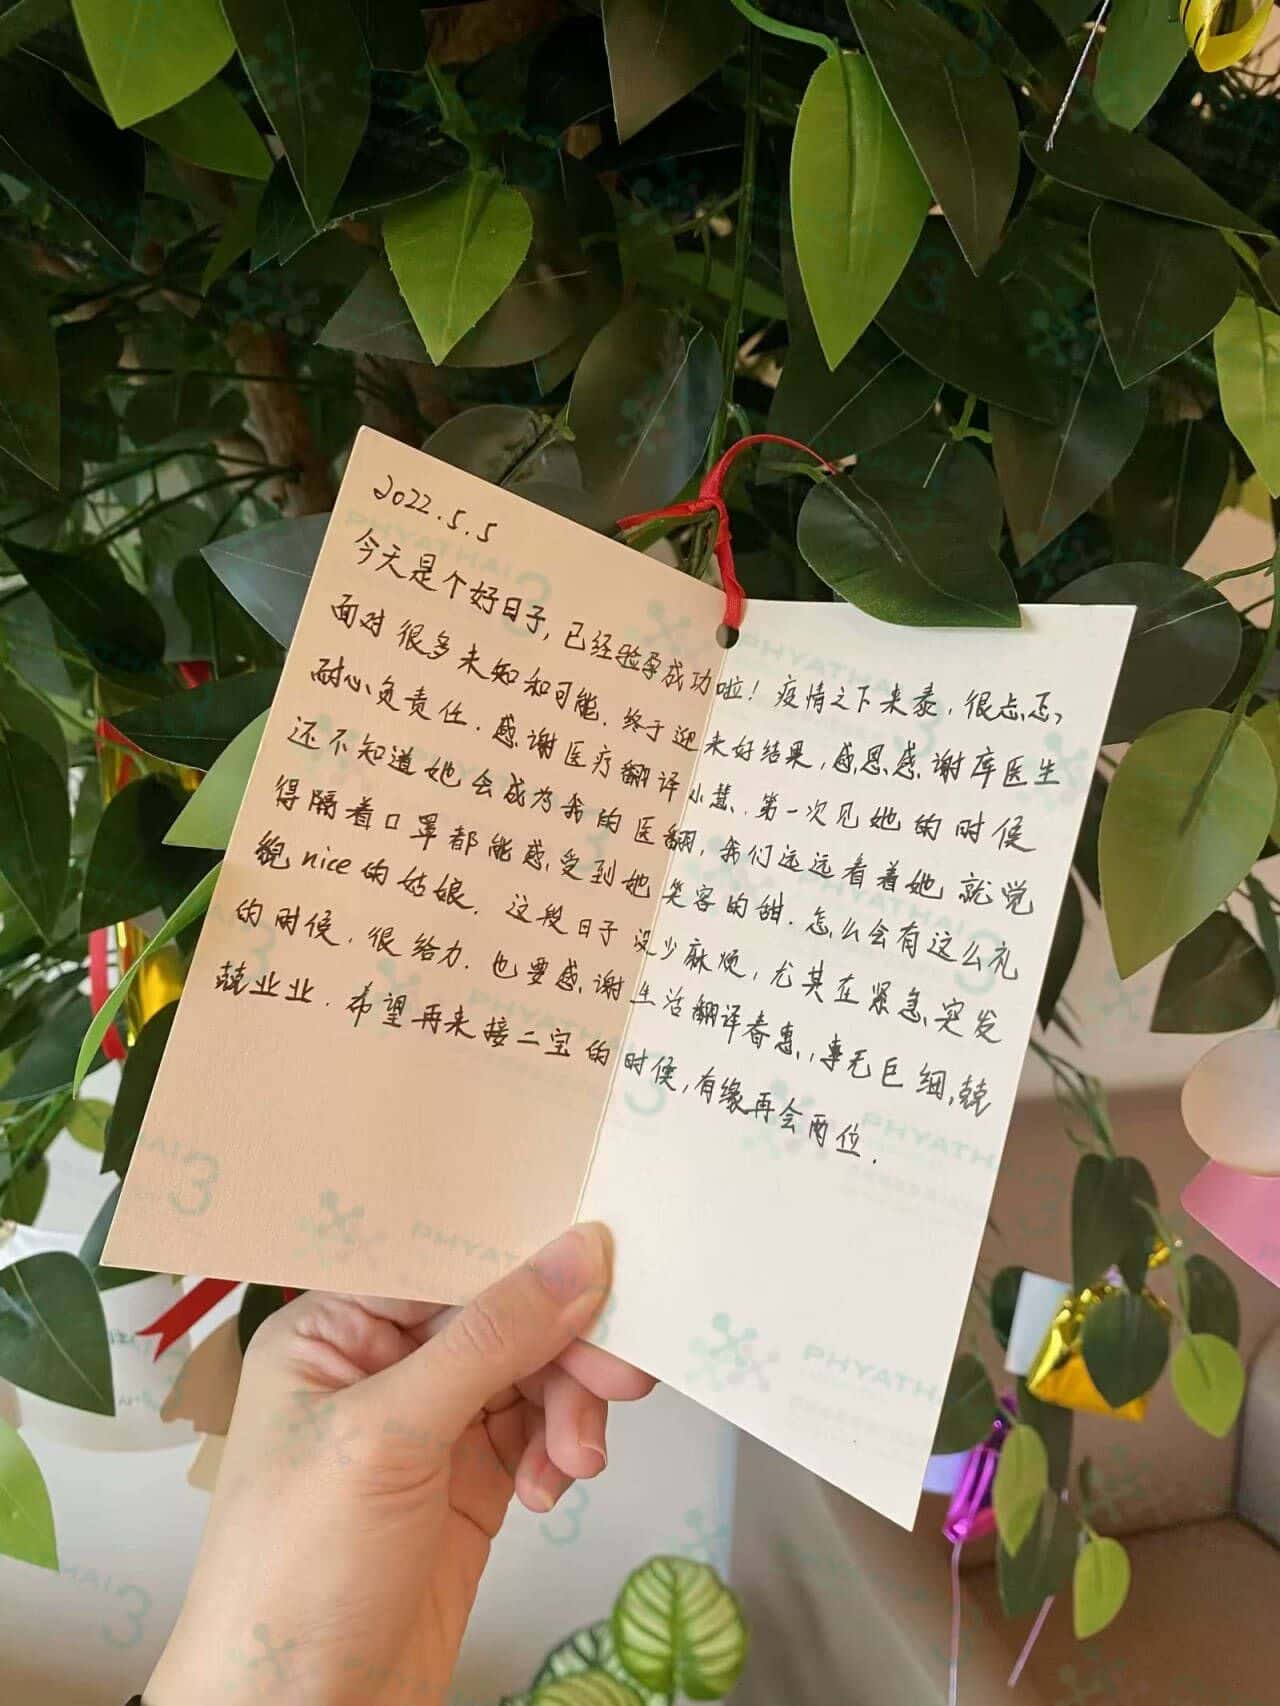 2022.5.5
今天是个好日子，已经验孕成功啦！疫情之下来泰，很忐忑，
面对很多未知和可能．终于迎来好结果，感恩感谢库医生
耐心、负责任．感谢医疗翻译小慧．第一次见她的时候
还不知道她会成为我的医翻，我们远远看着她就觉
得隔着口罩都能感受到她笑容的甜．怎么会有这么礼
貌nice的姑娘．这段日子没少麻烦，尤其在紧急、突发
的时候，很给力．也要感谢生活翻译春惠，事无巨细，兢
兢业业．希望再来接二宝的时候，有缘再会两位．
PHYATHAI 3